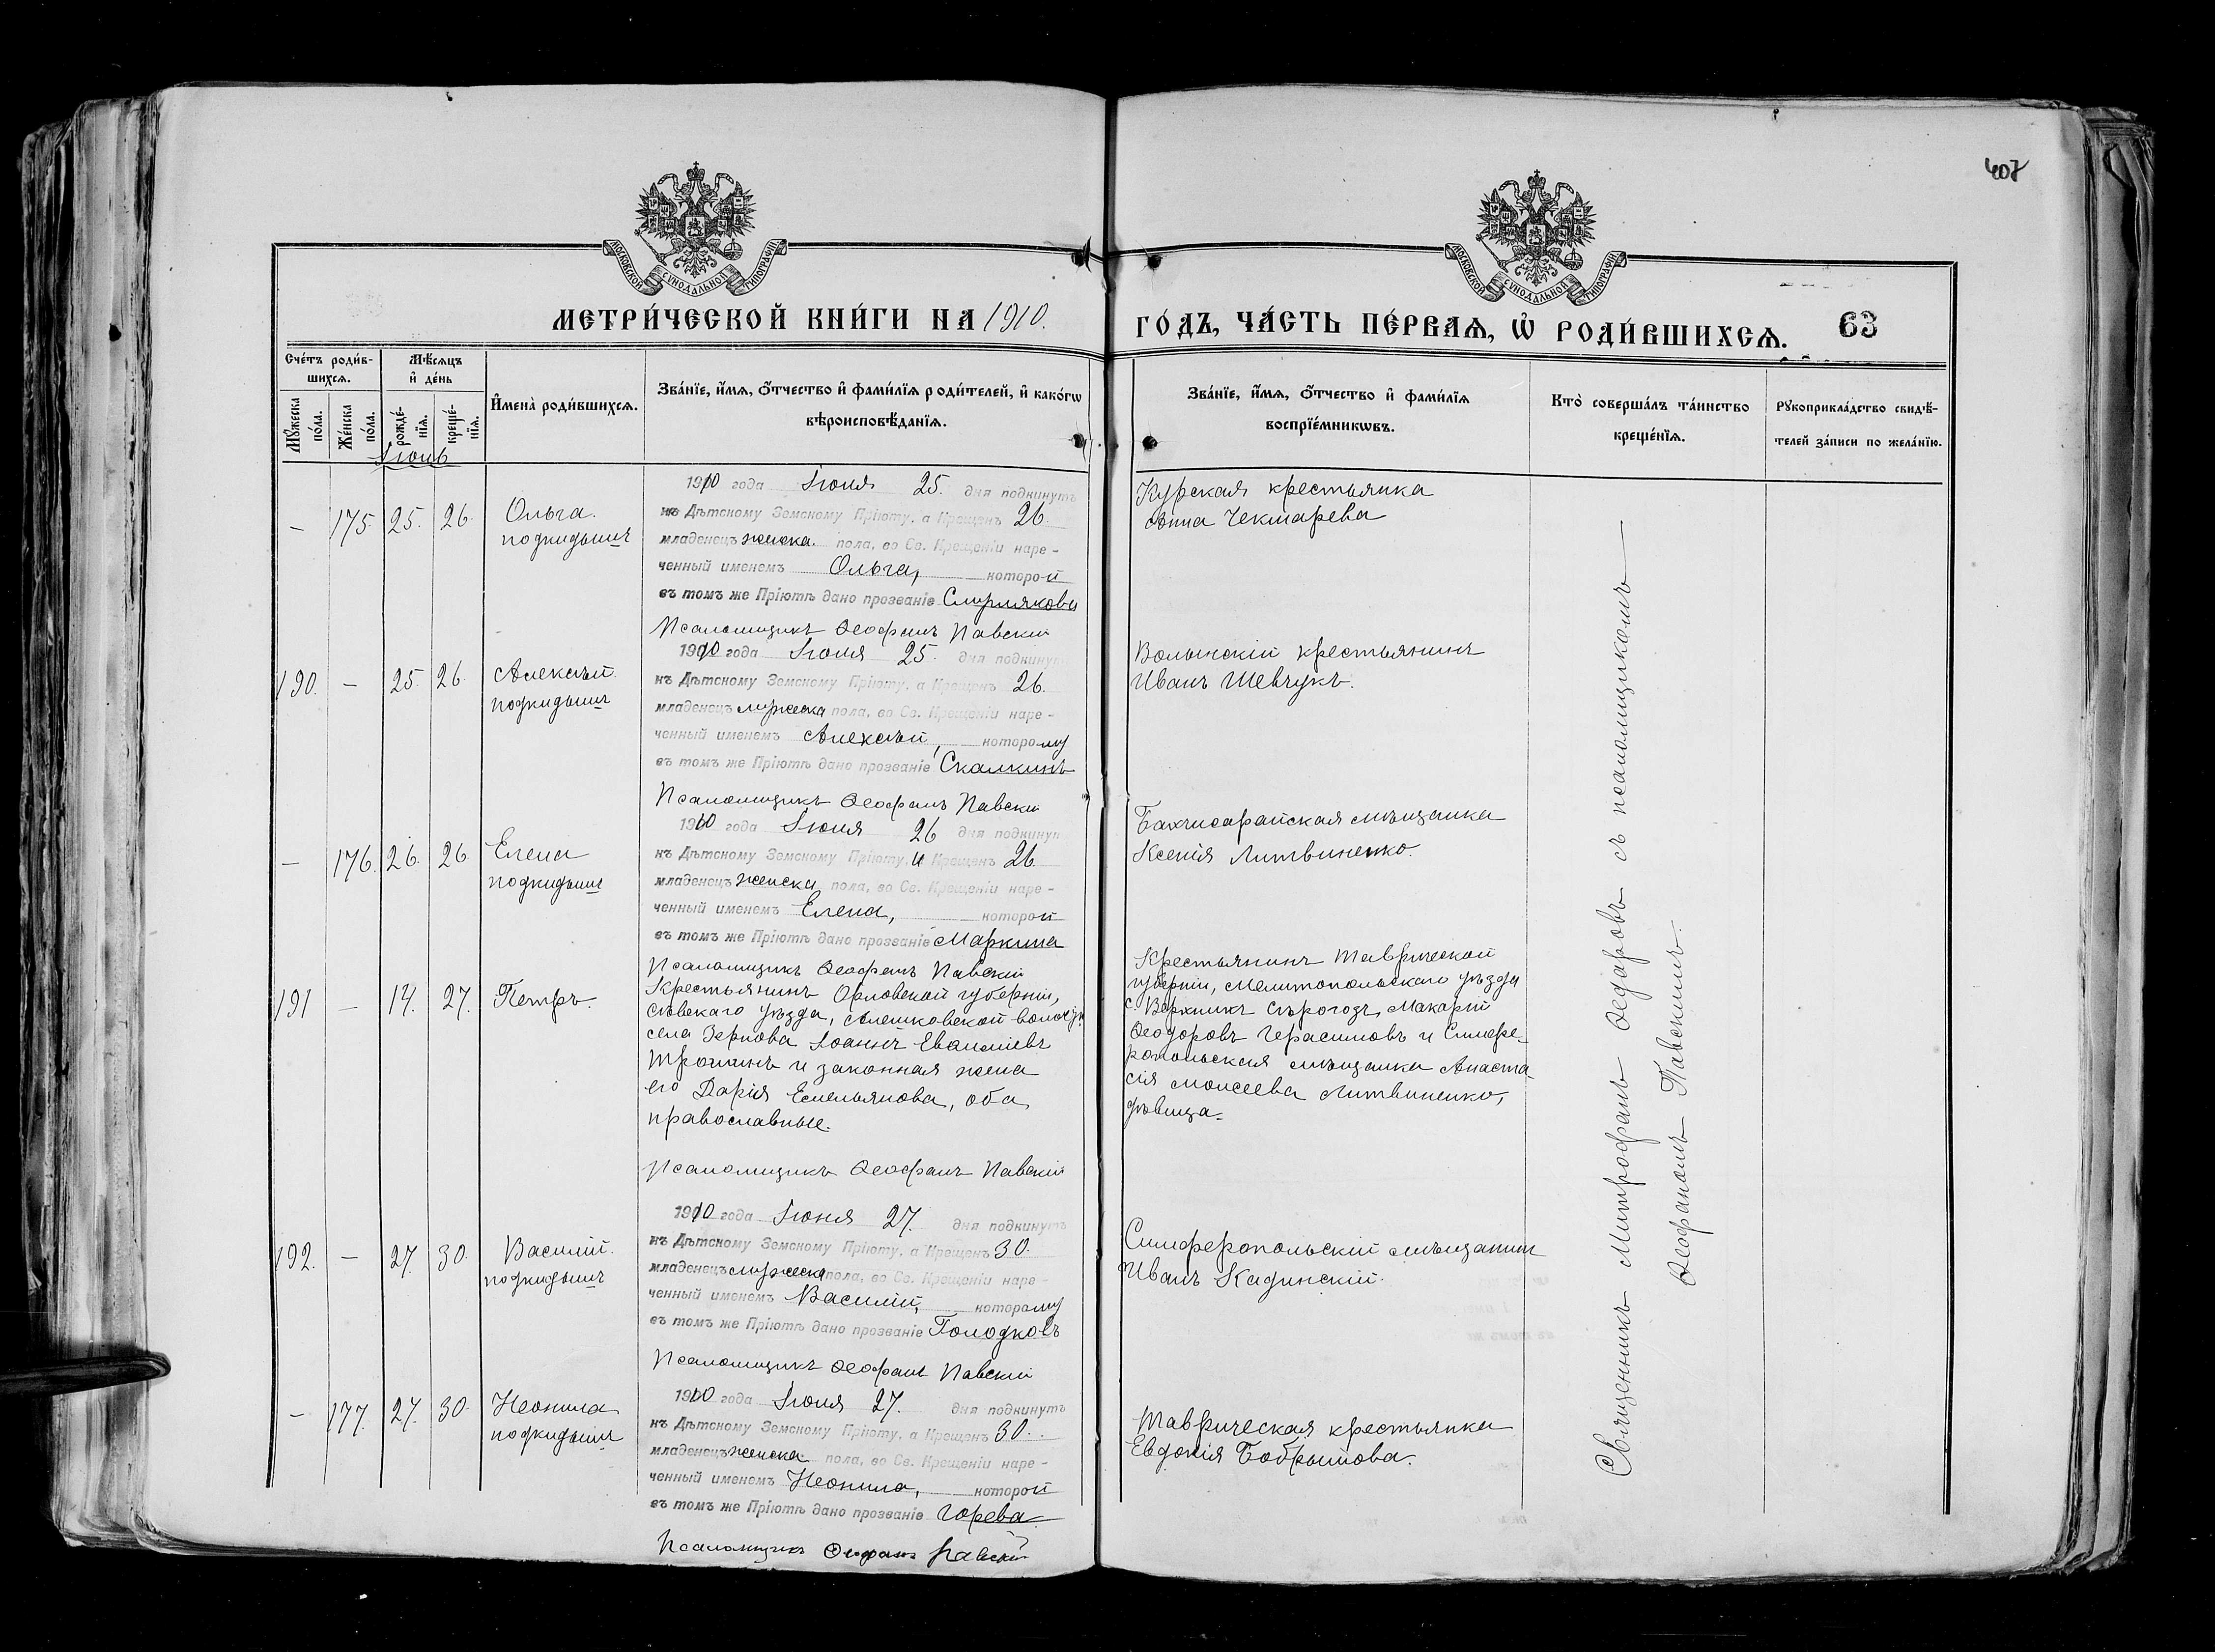 407
МОСКОВСКОЙ СѴНОДАЛЬНОЙ ТИПОГРАФІИ
МОСКОВСКОЙ СѴНОДАЛЬНОЙ ТИПОГРАФІИ
МЕТРИ́ЧЕСКОЙ КНИ́ГИ НА 1910.
ГО́ДЪ, ЧА́СТЬ ПЕ́РВАЯ, Ѡ҆ РОДИ́ВШИХСЯ. 63
Сче́тъ роди́в-
шихся.
Мꙋ́жеска по́ла.
Же́нска по́ла.
Мѣ́сяцъ и҆ де́нь
рожде́-
нїя.
креще́-
нїя.
Іюнь
И҆мена̀ роди́вшихся.
Зва́нїе, и҆́мя, ѻ҆́тчество и҆ фами́лїя роди́телей, и҆ како́гѡ
вѣроисповѣ́данїя.
Зва́нїе, и҆́мя, ѻ҆́тчество и҆ фами́лїя
воспрїе́мникѡвъ.
Кто̀ соверша́лъ та́инство
креще́нїя.
Рꙋкоприкла́дство свидѣ́-
телей за́писи по жела́нїю.
— 175 25. 26.
Ольга.
подкидышъ
1910 года Іюня 25. дня подкинутъ
къ Дѣтскому Земскому Пріюту, а Крещенъ 26.
младенецъ женска пола, во Св. Крещеніи наре-
ченный именемъ Ольга, которой
въ томъ же Пріютѣ дано прозваніе
Псаломщикъ Ѳеофанъ Павскій
Курская крестьянка
Анна Чекмарева
190. — 25. 26.
Алексѣй.
подкидышъ
1910 года Іюня 25. дня подкинутъ
къ Дѣтскому Земскому Пріюту, а Крещенъ 26.
младенецъ мужеска пола, во Св. Крещеніи наре-
ченный именемъ Алексѣй, которому
въ томъ же Пріютѣ дано прозваніе Скалкинъ
Псаломщикъ Ѳеофанъ Павскій
Волынскій крестьянинъ
Иванъ Шевчукъ.
— 176. 26. 26
Елена
подкидышъ
1910 года Іюня 26 дня подкинутъ
къ Дѣтскому Земскому Пріюту, и Крещенъ 26
младенецъ женска пола, во Св. Крещеніи наре-
ченный именемъ Елена, которой
въ томъ же Пріютѣ дано прозваніе Маркина
Псаломщикъ Ѳеофанъ Павскій
Бахчисарайская мѣщанка
Ксенія Литвиненко.
191 — 14. 27.
Петръ.
Крестьянинъ Орловской губерніи,
Сѣвскаго уѣзда, Алешковской волости,
села Зернова Іоаннъ
Трошинъ и законная жена
его Дарія Емельянова, оба
православные.
Псаломщикъ Ѳеофанъ Павскій
Крестьянинъ Таврической
губерніи, Мелитопольскаго уѣзда
с. Верхнихъ Сѣрогозъ, Макарій
Ѳеодоровъ Герасимовъ и Симфе-
ропольская мѣщанка Анаста-
сія Моисеева Литвиненко,
дѣвица.
192. — 27. 30.
Василій.
подкидышъ
1910 года Іюня 27. дня подкинутъ
къ Дѣтскому Земскому Пріюту, а Крещенъ 30.
младенецъ мужеска пола, во Св. Крещеніи наре-
ченный именемъ Василій, которому
въ томъ же Пріютѣ дано прозваніе Голодковъ
Псаломщикъ Ѳеофанъ Павскій
Симферопольскій мѣщанинъ
Иванъ Кадинскій.
— 177. 27. 30.
Неонила
подкидышъ
1910 года Іюня 27. дня подкинутъ
къ Дѣтскому Земскому Пріюту, а Крещенъ 30.
младенецъ женска пола, во Св. Крещеніи наре-
ченный именемъ Неонила, которой
въ томъ же Пріютѣ дано прозваніе Горева
Псаломщикъ Ѳеофанъ Павскій
Таврическая крестьянка
Евдокія
Священникъ Митрофанъ Ѳедоровъ съ псаломщикомъ
Ѳеофаномъ Павскимъ.